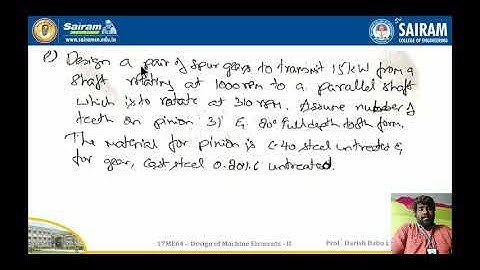 Sairam
DIGITAL RESOURCES
www.sairamen.edu.in
SAIRAM
COLLEGE OF ENGINEERING
P) Design a pair of spur gears to transmit 15 kW from a
shaft rotating at 1000 rpm to a parallel shaft
which is to rotate at 310 rpm. Assume number of
teeth on pinion 31 & 20° full depth tooth form.
The material for pinion is C-40 steel untreated &
for gear, cast steel 0.20% C untreated.
17ME64 – Design of Machine Elements - II
Prof. Harish Babu L